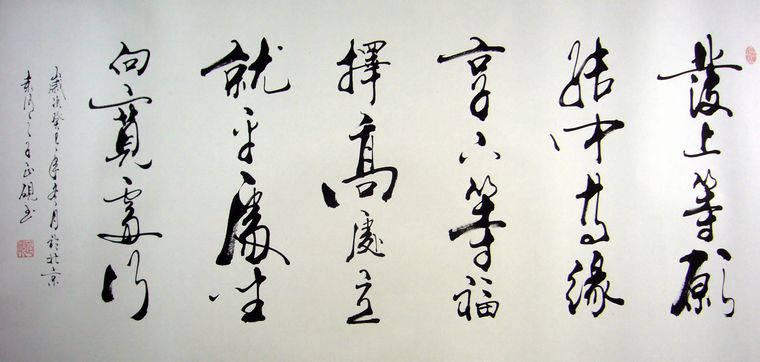 發上等願
結中等緣
享下等福
擇高處立
就平處坐
向寬處行
歲次癸巳年冬月於北京